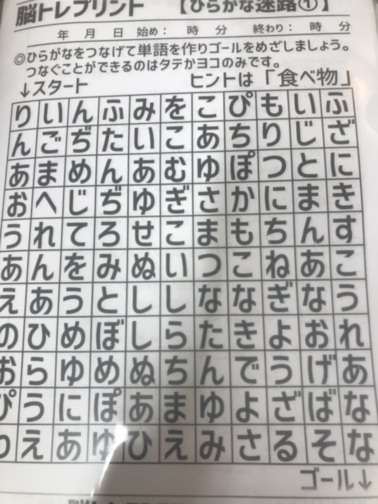 脳トレプリント 【ひらがな迷路①】
年 月 日 始め： 時 分 終わり： 時 分
◎ひらがなをつなげて単語を作りゴールをめざしましょう。
つなぐことができるのはタテかヨコのみです。
↓スタート ヒントは「食べ物」
りいんふみをこぴもいふ
んごぢたいこあちりじざ
あまめんあむゆぽつとに
おへじぢゆぎさかにまき
うれてろせこまもちんす
あんをみぬいつこねあこ
えあうとししななぎなう
のひめぼしらたきよおれ
おらゆめぬちんでうげあ
ぴうにぽあまゆよざばな
えあゆひえみさるそな
ゴール↓